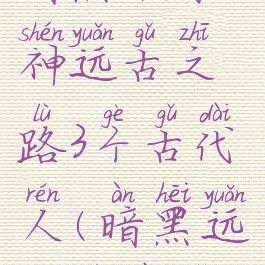 shén yuǎn gǔ zhī
神远古之
lù gè gǔ dài
路3个古代
rén àn hēi yuǎn
人(暗黑远